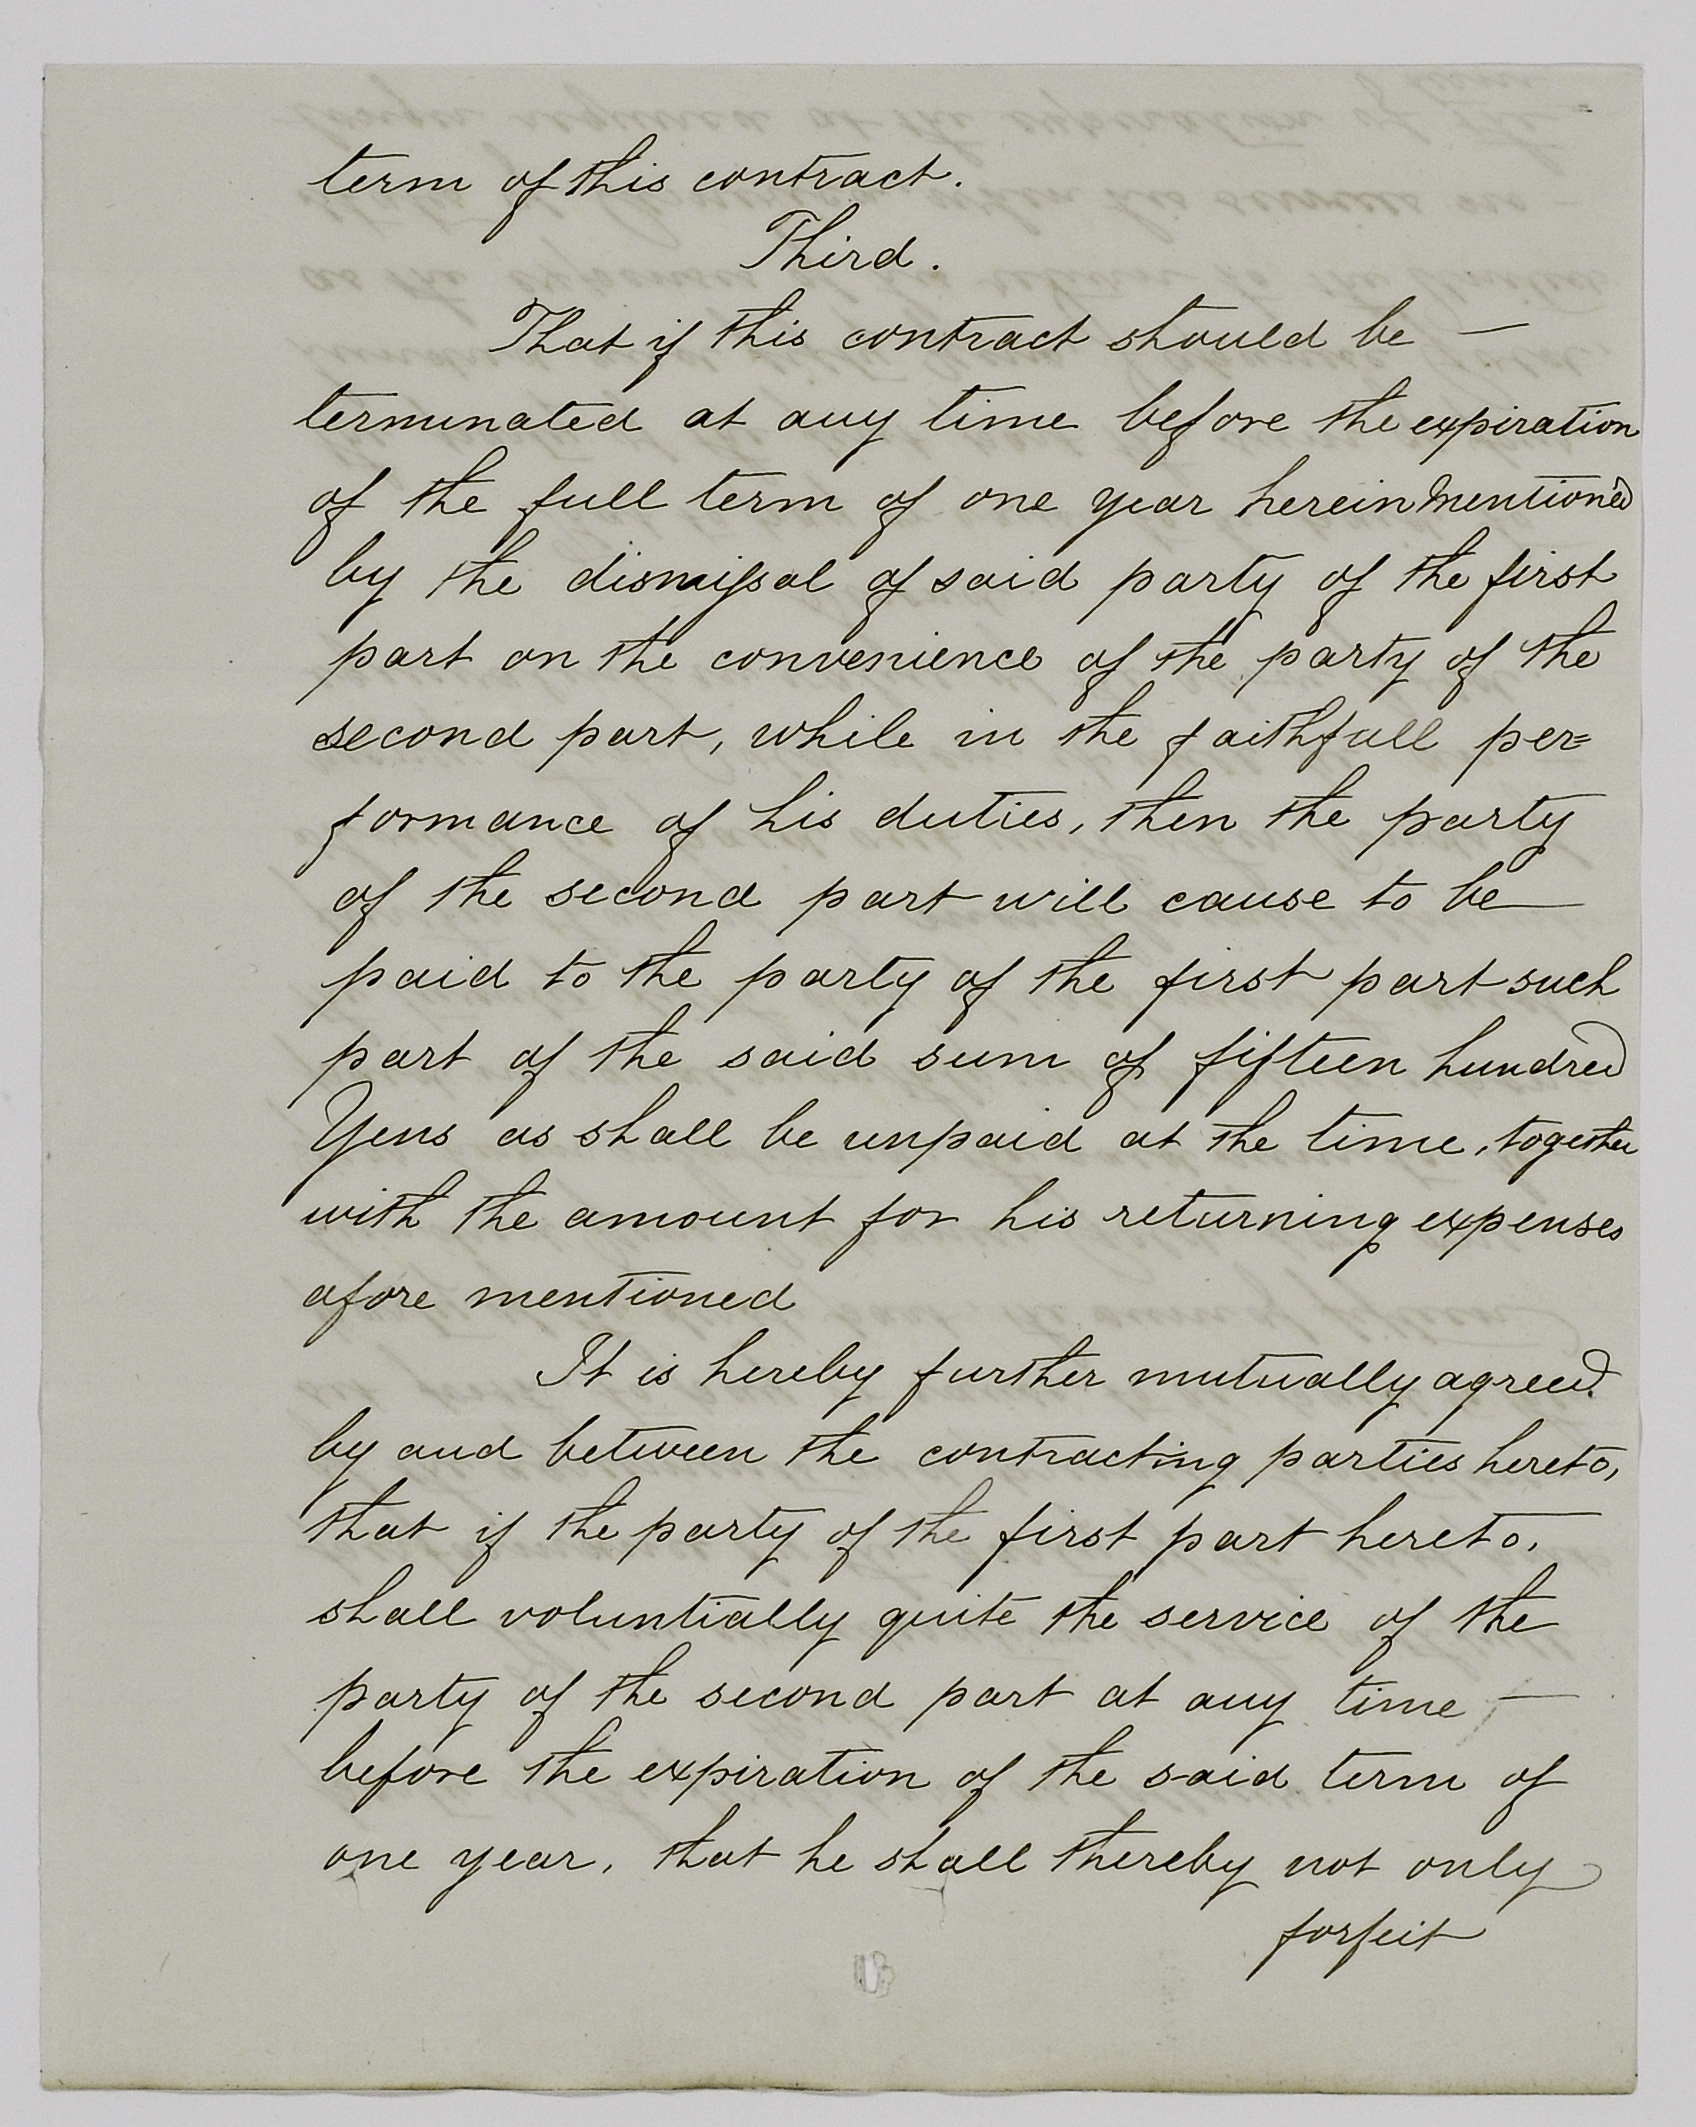 term of this contract.
Third.
That if this contract should be —
terminated at any time before the expiration
of the full term of one year herein mentioned
by the dismissal of said party of the first
part on the convenience of the party of the
second part, while in the faithfull per=
formance of his duties, then the party
of the second part will cause to be —
paid to the party of the first part such
part of the said sum of fifteen hundred
Yens as shall be unpaid at the time, together
with the amount for his returning expenses
afore mentioned
It is hereby further mutually agreed.
by and between the contracting parties hereto,
that if the party of the first part hereto,
shall voluntially quite the service of the
party of the second part at any time —
before the expiration of the said term of
one year, that he shall thereby not only
forfeit